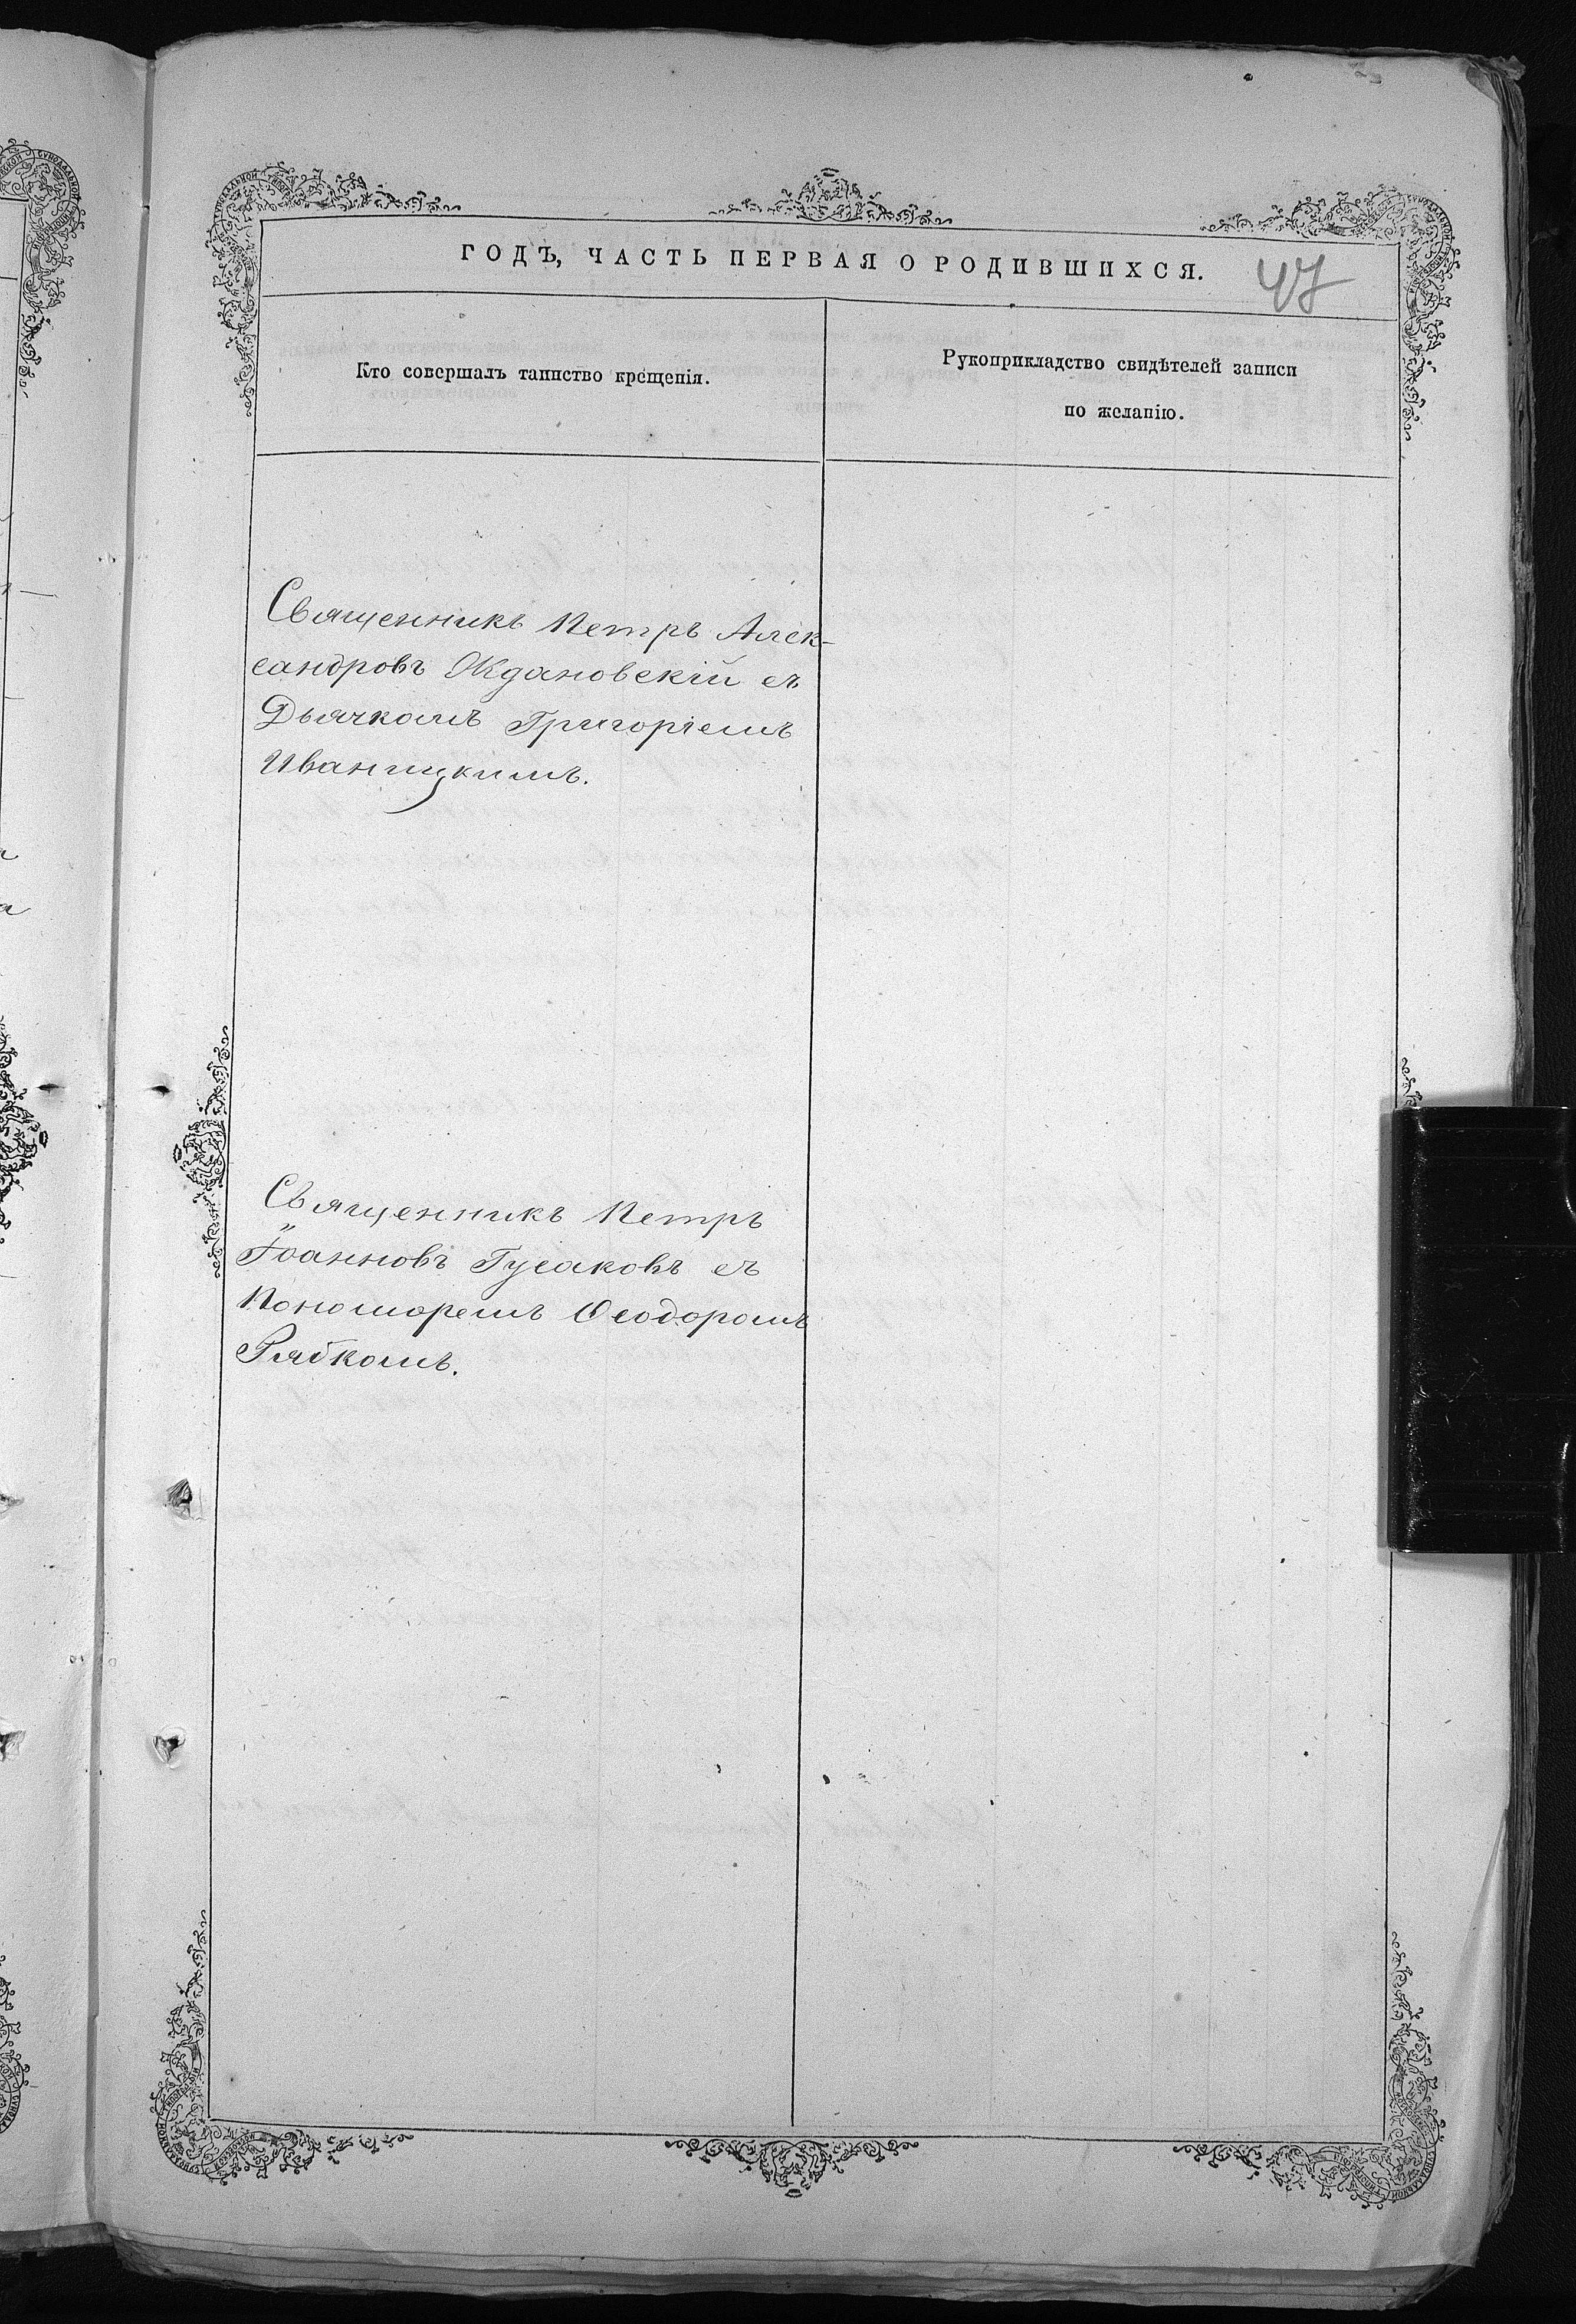 ГОДЪ, ЧАСТЬ ПЕРВАЯ О РОДИВШИХСЯ.
47
Кто совершалъ таинство крещенія.
Рукоприкладство свидѣтелей записи
по желанію.
Священникъ Петръ Алек-
сандровъ Ждановскій съ
Дьячкомъ Григоріемъ
Иваницкимъ.
Священникъ Петръ
Іоанновъ Гусаковъ съ
Пономоремъ Ѳеодоромъ
Рябкомъ.